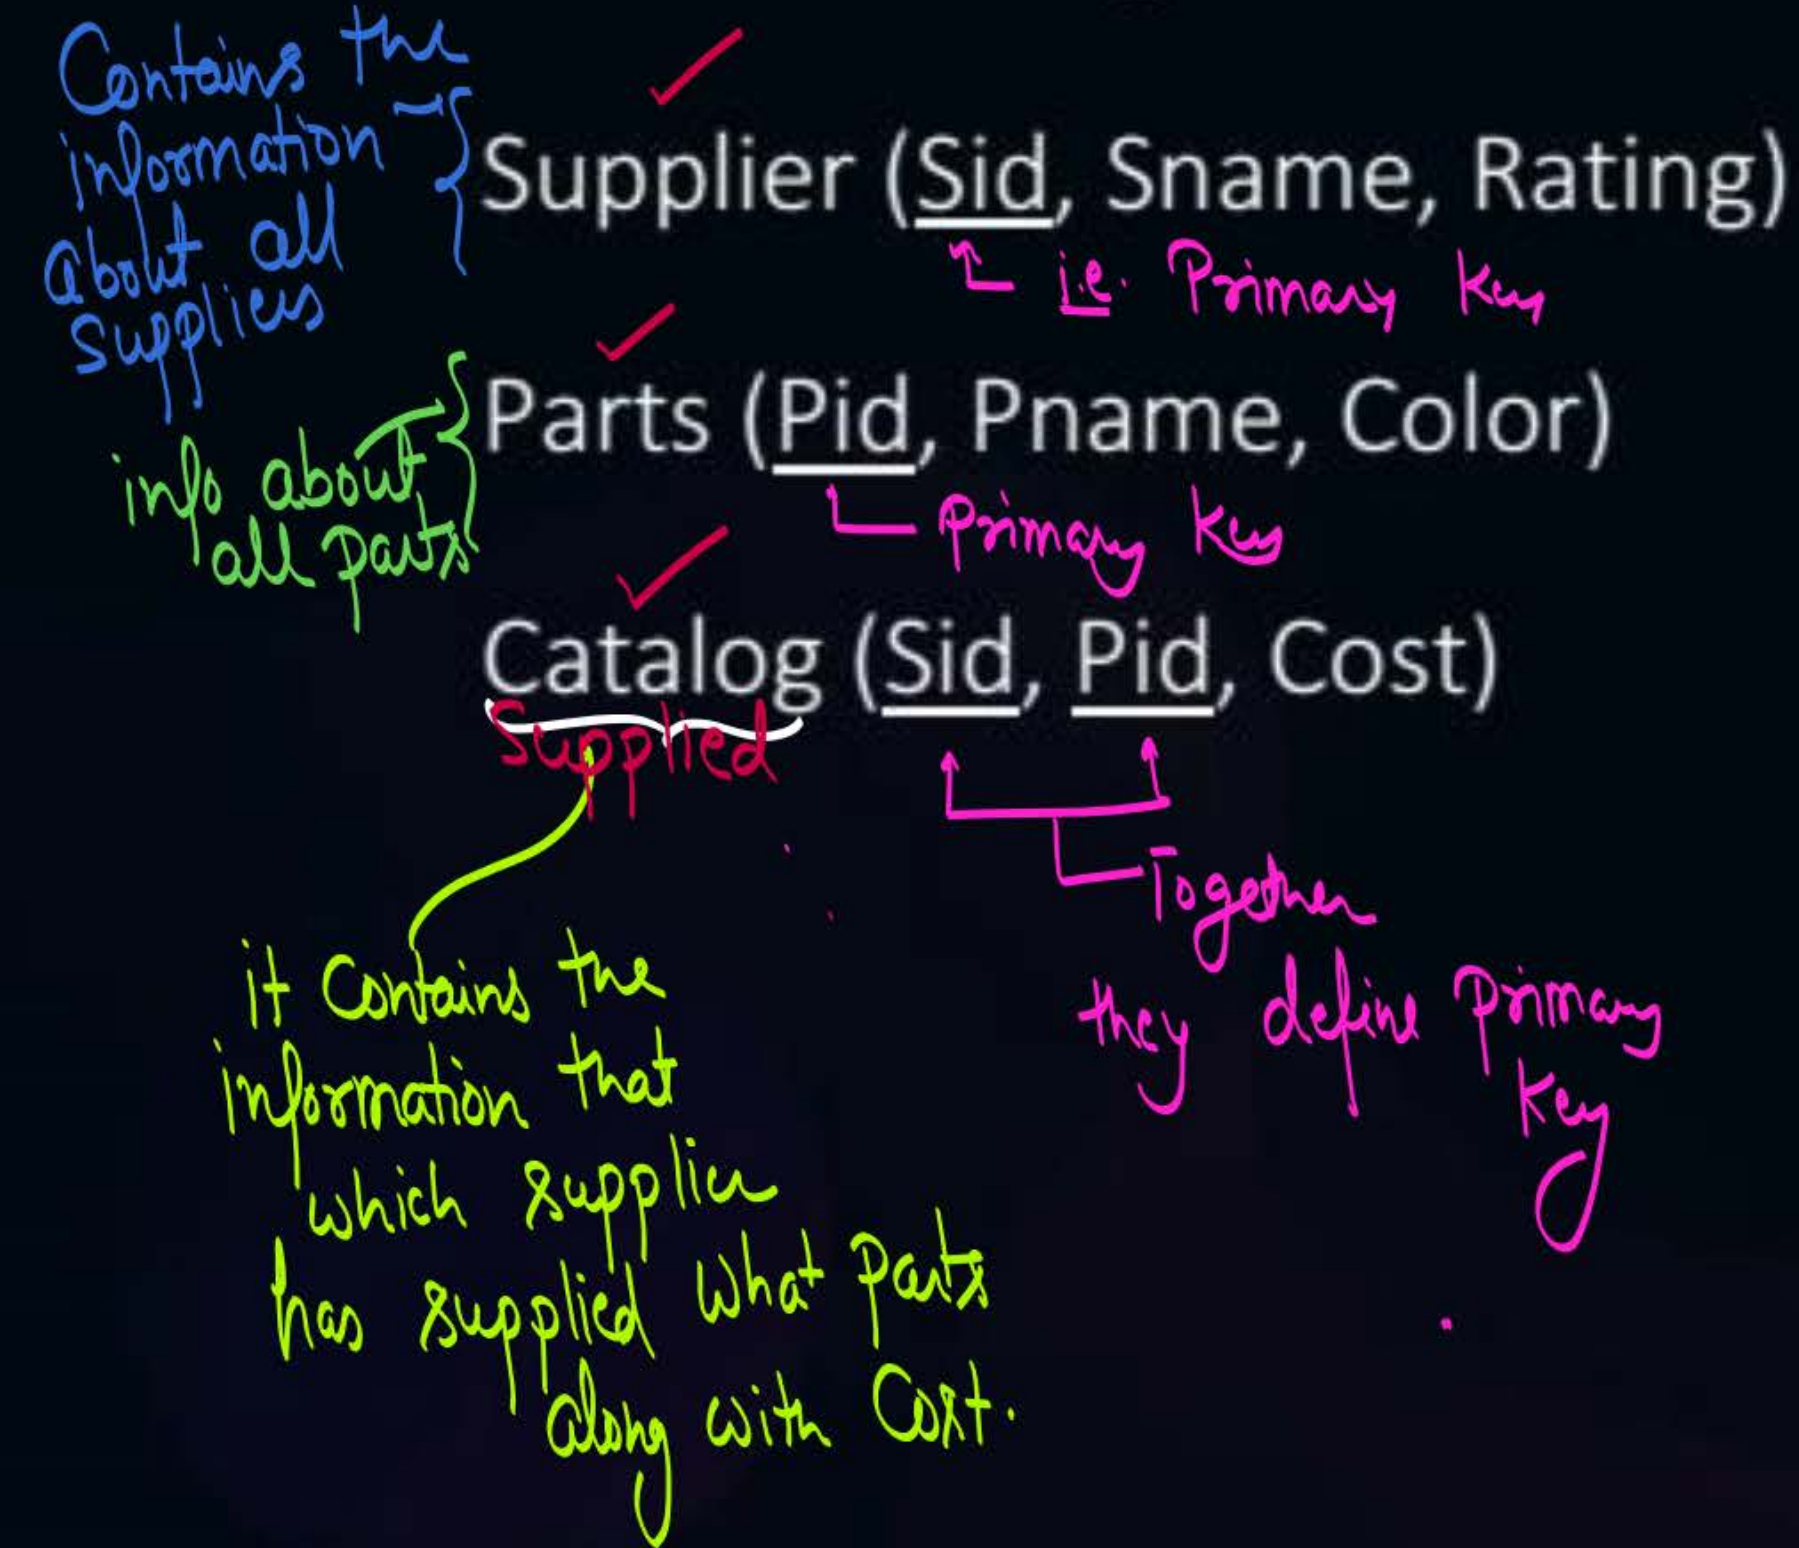 Contains the
information
about all
suppliers
Supplier (Sid, Sname, Rating)
i.e. Primary Key
info about
all parts
Parts (Pid, Pname, Color)
Primary Key
Catalog (Sid, Pid, Cost)
Supplied
Together
they define primary
key
it contains the
information that
which supplier
has supplied what parts
along with cost.